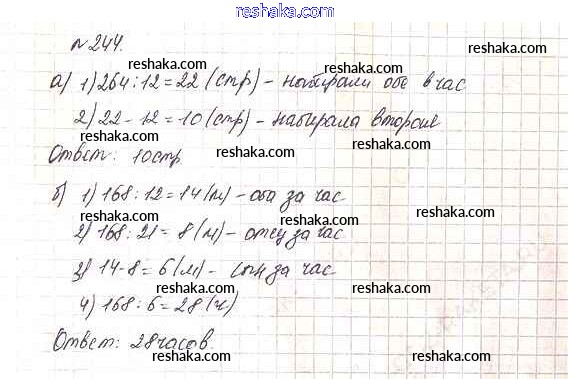 www.reshaka.com
№ 244.
reshaka.com
а) 1) 264 : 12 = 22 (стр) - набирали обе в час
reshaka.com reshaka.com
2) 22 - 12 = 10 (стр) - набирала вторая
reshaka.com
Ответ: 10 стр
reshaka.com
б) 1) 168 : 12 = 14 (м) - оба за час
reshaka.com reshaka.com reshaka.com
2) 168 : 21 = 8 (м) - отец за час
reshaka.com
3) 14 - 8 = 6 (м) - сын за час
reshaka.com
4) 168 : 6 = 28 (ч)
reshaka.com reshaka.com
Ответ: 28 часов.
reshaka.com
reshaka.com